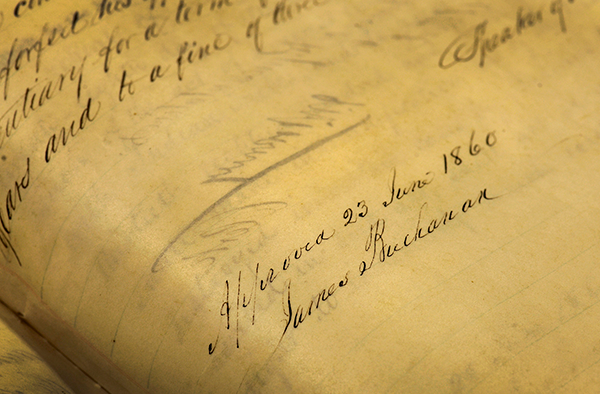 forfeit his
for a term
years and to a fine of three
Speaker of
Approved 23 June 1860
James Buchanan